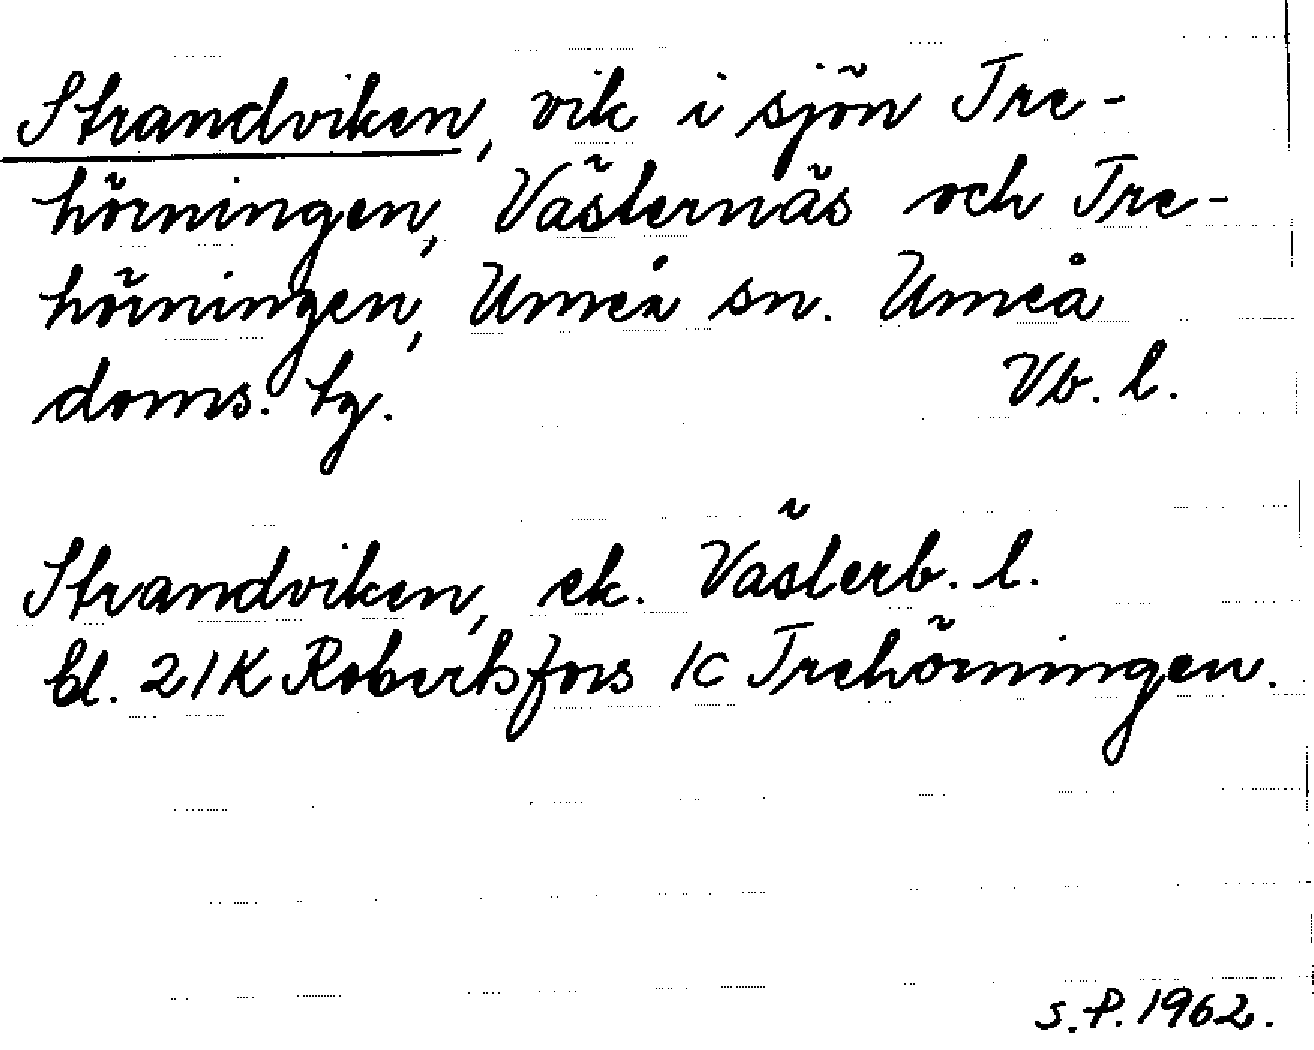 Strandviken, vik i sjön Tre-
hörningen, Västernäs och Tre-
hörningen, Umeå sn. Umeå
doms. tg. Vb. l.
Strandviken, ek. Västerb. l.
bl. 21K Robertsfors 1c Trehörningen.
S.P. 1962.